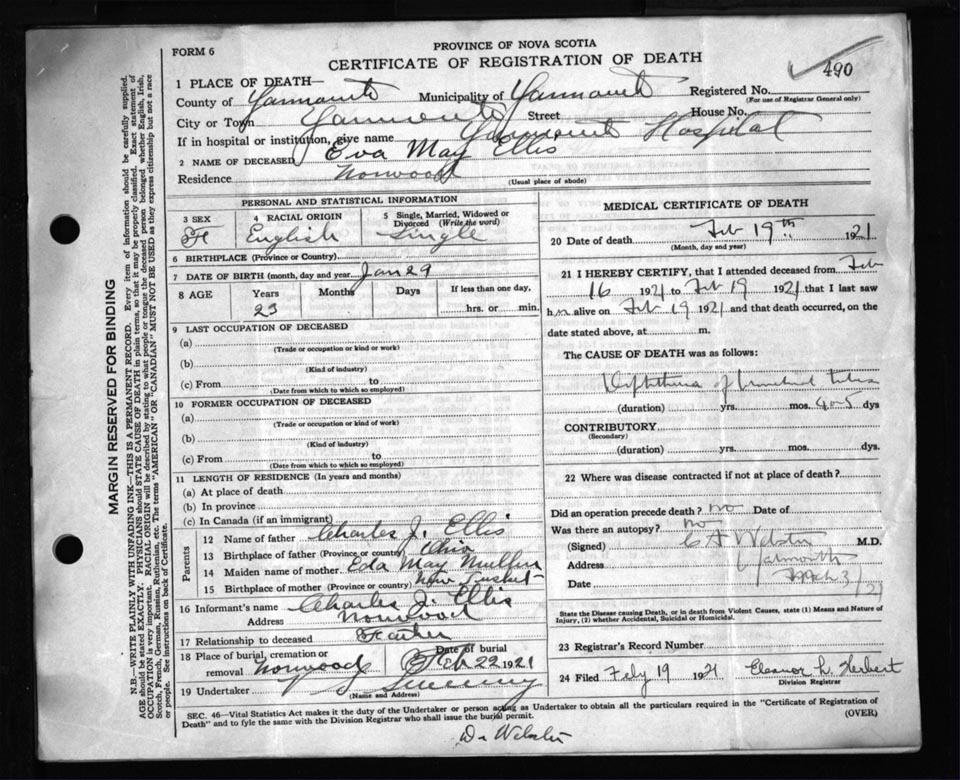 PROVINCE OF NOVA SCOTIA
FORM 6
CERTIFICATE OF REGISTRATION OF DEATH
490
1 PLACE OF DEATH—
County of Yarmouth Municipality of Yarmouth Registered No.
(For use of Registrar General only)
City or Town Yarmouth Street House No.
If in hospital or institution, give name Yarmouth Hospital
2 NAME OF DECEASED Eva May Ellis
Residence Norwood
(Usual place of abode)
PERSONAL AND STATISTICAL INFORMATION
3 SEX 4 RACIAL ORIGIN 5 Single, Married, Widowed or Divorced (Write the word)
F English Single
6 BIRTHPLACE (Province or Country)
7 DATE OF BIRTH (month, day and year Jan 29
8 AGE Years Months Days If less than one day,
23 hrs. or min.
9 LAST OCCUPATION OF DECEASED
(a)
(Trade or occupation or kind or work)
(b)
(Kind of industry)
(c) From to
(Date from which to which so employed)
10 FORMER OCCUPATION OF DECEASED
(a)
(Trade or occupation or kind of work)
(b)
(Kind of industry)
(c) From to
(Date from which to which so employed)
11 LENGTH OF RESIDENCE (In years and months)
(a) At place of death
(b) In province
(c) In Canada (if an immigrant)
Parents
12 Name of father Charles J. Ellis
13 Birthplace of father (Province or country) Ohio
14 Maiden name of mother Eda May
15 Birthplace of mother (Province or country) New Tusket
16 Informant's name Charles J. Ellis
Address Norwood
17 Relationship to deceased Father
18 Place of burial, cremation or removal Norwood Date of burial Feb 22 1921
19 Undertaker Sweeny
(Name and Address)
MEDICAL CERTIFICATE OF DEATH
20 Date of death Feb 19th 1921
(Month, day and year)
21 I HEREBY CERTIFY, that I attended deceased from Feb
16 1921 to Feb 19 1921 that I last saw
h er alive on Feb 19 1921 and that death occurred, on the
date stated above, at m.
The CAUSE OF DEATH was as follows:
Diphtheria of bronchial tubes
(duration) yrs. mos. 4 or 5 dys
CONTRIBUTORY
(Secondary)
(duration) yrs. mos. dys.
22 Where was disease contracted if not at place of death?
Did an operation precede death? no Date of
Was there an autopsy? no
(Signed) C A Webster M.D.
Address Yarmouth
Date
State the Disease causing Death, or in death from Violent Causes, state (1) Means and Nature of
Injury, (2) whether Accidental, Suicidal or Homicidal.
23 Registrar's Record Number
24 Filed Feby 19 1921 Eleanor L. Herbert
Division Registrar
SEC. 46—Vital Statistics Act makes it the duty of the Undertaker or person acting as Undertaker to obtain all the particulars required in the "Certificate of Registration of
Death" and to fyle the same with the Division Registrar who shall issue the burial permit.
(OVER)
Dr Webster
MARGIN RESERVED FOR BINDING
N.B.—WRITE PLAINLY WITH UNFADING INK—THIS IS A PERMANENT RECORD. Every item of information should be carefully supplied.
AGE should be stated EXACTLY. PHYSICIANS should STATE CAUSE OF DEATH in plain terms, so that it may be properly classified. Exact statement of
OCCUPATION is very important. RACIAL ORIGIN will be described by stating to what people or tongue the deceased person belonged whether English, Irish,
Scotch, French, German, Russian, Ruthenian, etc. The terms "AMERICAN" OR "CANADIAN" MUST NOT BE USED as they express citizenship but not a race
or people. See instructions on back of Certificate.